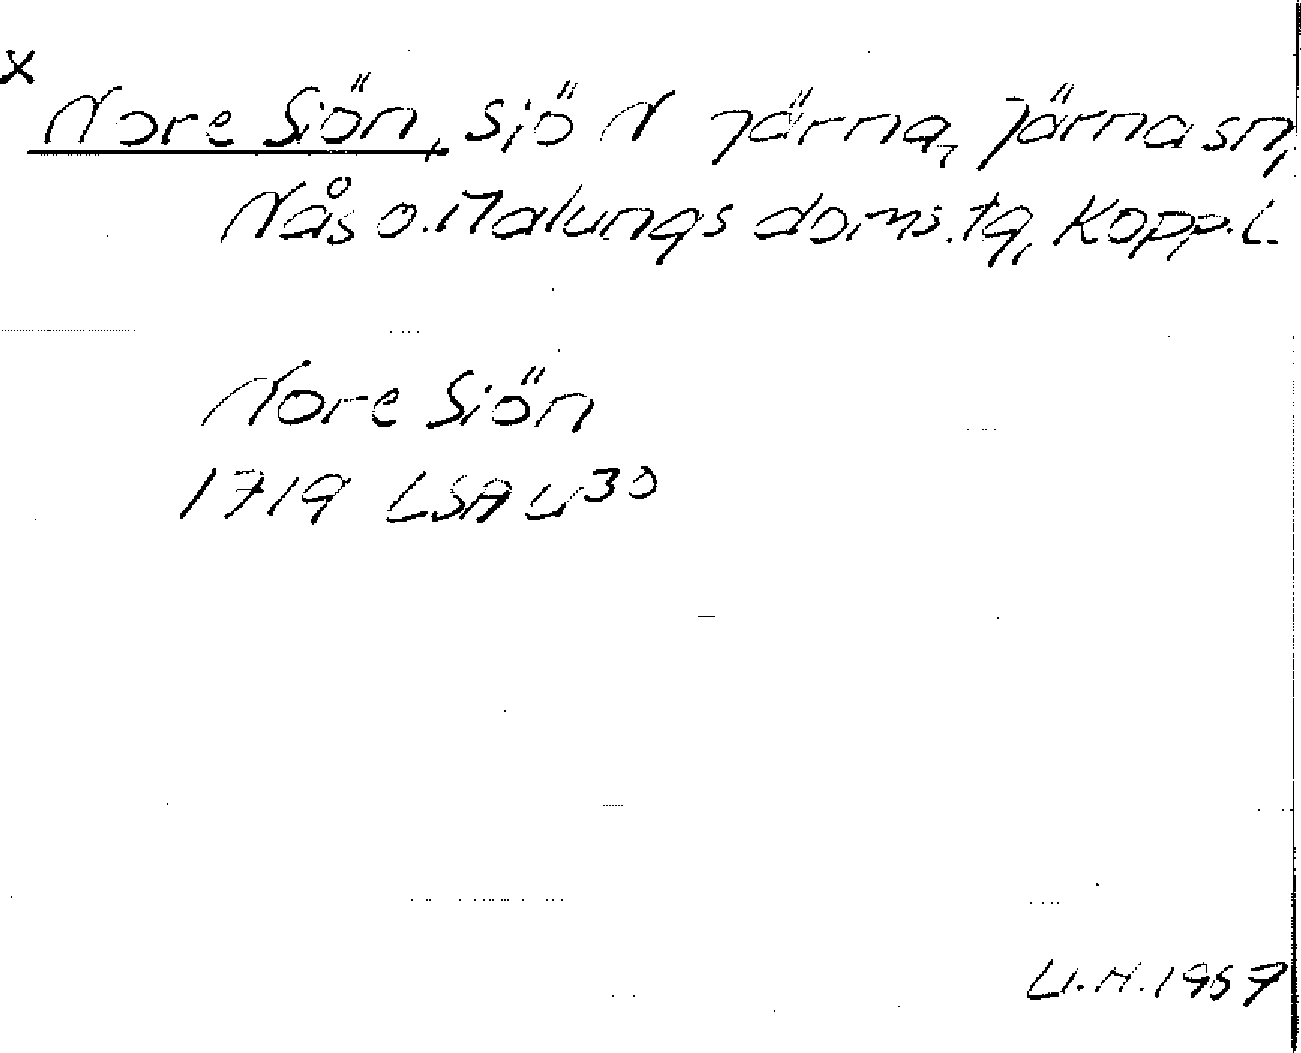 x
Nore Siön, sjö N Järna, Järna sn,
Nås o. Malungs doms. tg, Kopp. l.
Nore Siön
1719 LSA U30
U.H. 1957